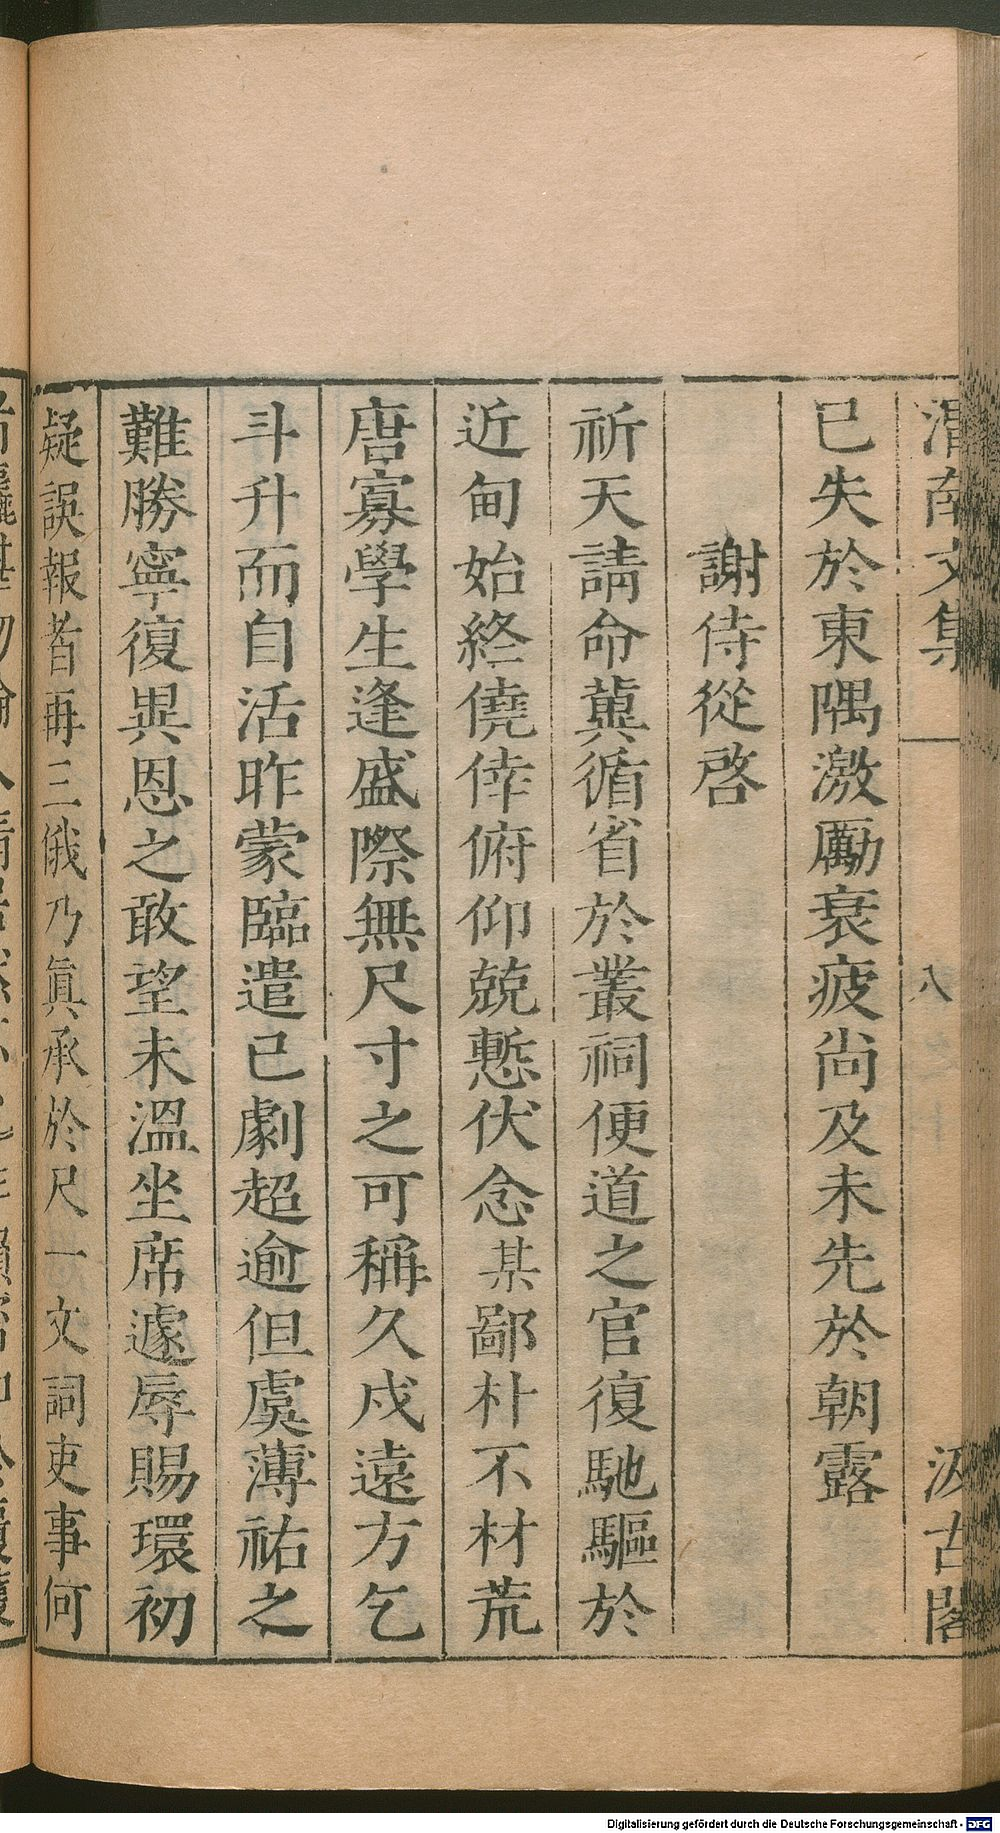 渭南文集 八 汲古閣
已失於東隅激厲衰疲尚及未先於朝露
謝侍從啓
祈天請命冀循省於叢祠便道之官復馳驅於
近甸始終僥倖俯仰兢慙伏念某鄙朴不材荒
唐寡學生逢盛際無尺寸之可稱久戍遠方乞
斗升而自活昨蒙臨遣已劇超逾但虞薄祐之
難勝寧復異恩之敢望未溫坐席遽辱賜環初
疑誤報者再三俄乃眞承於尺一文詞吏事何
Digitalisierung gefördert durch die Deutsche Forschungsgemeinschaft - DFG